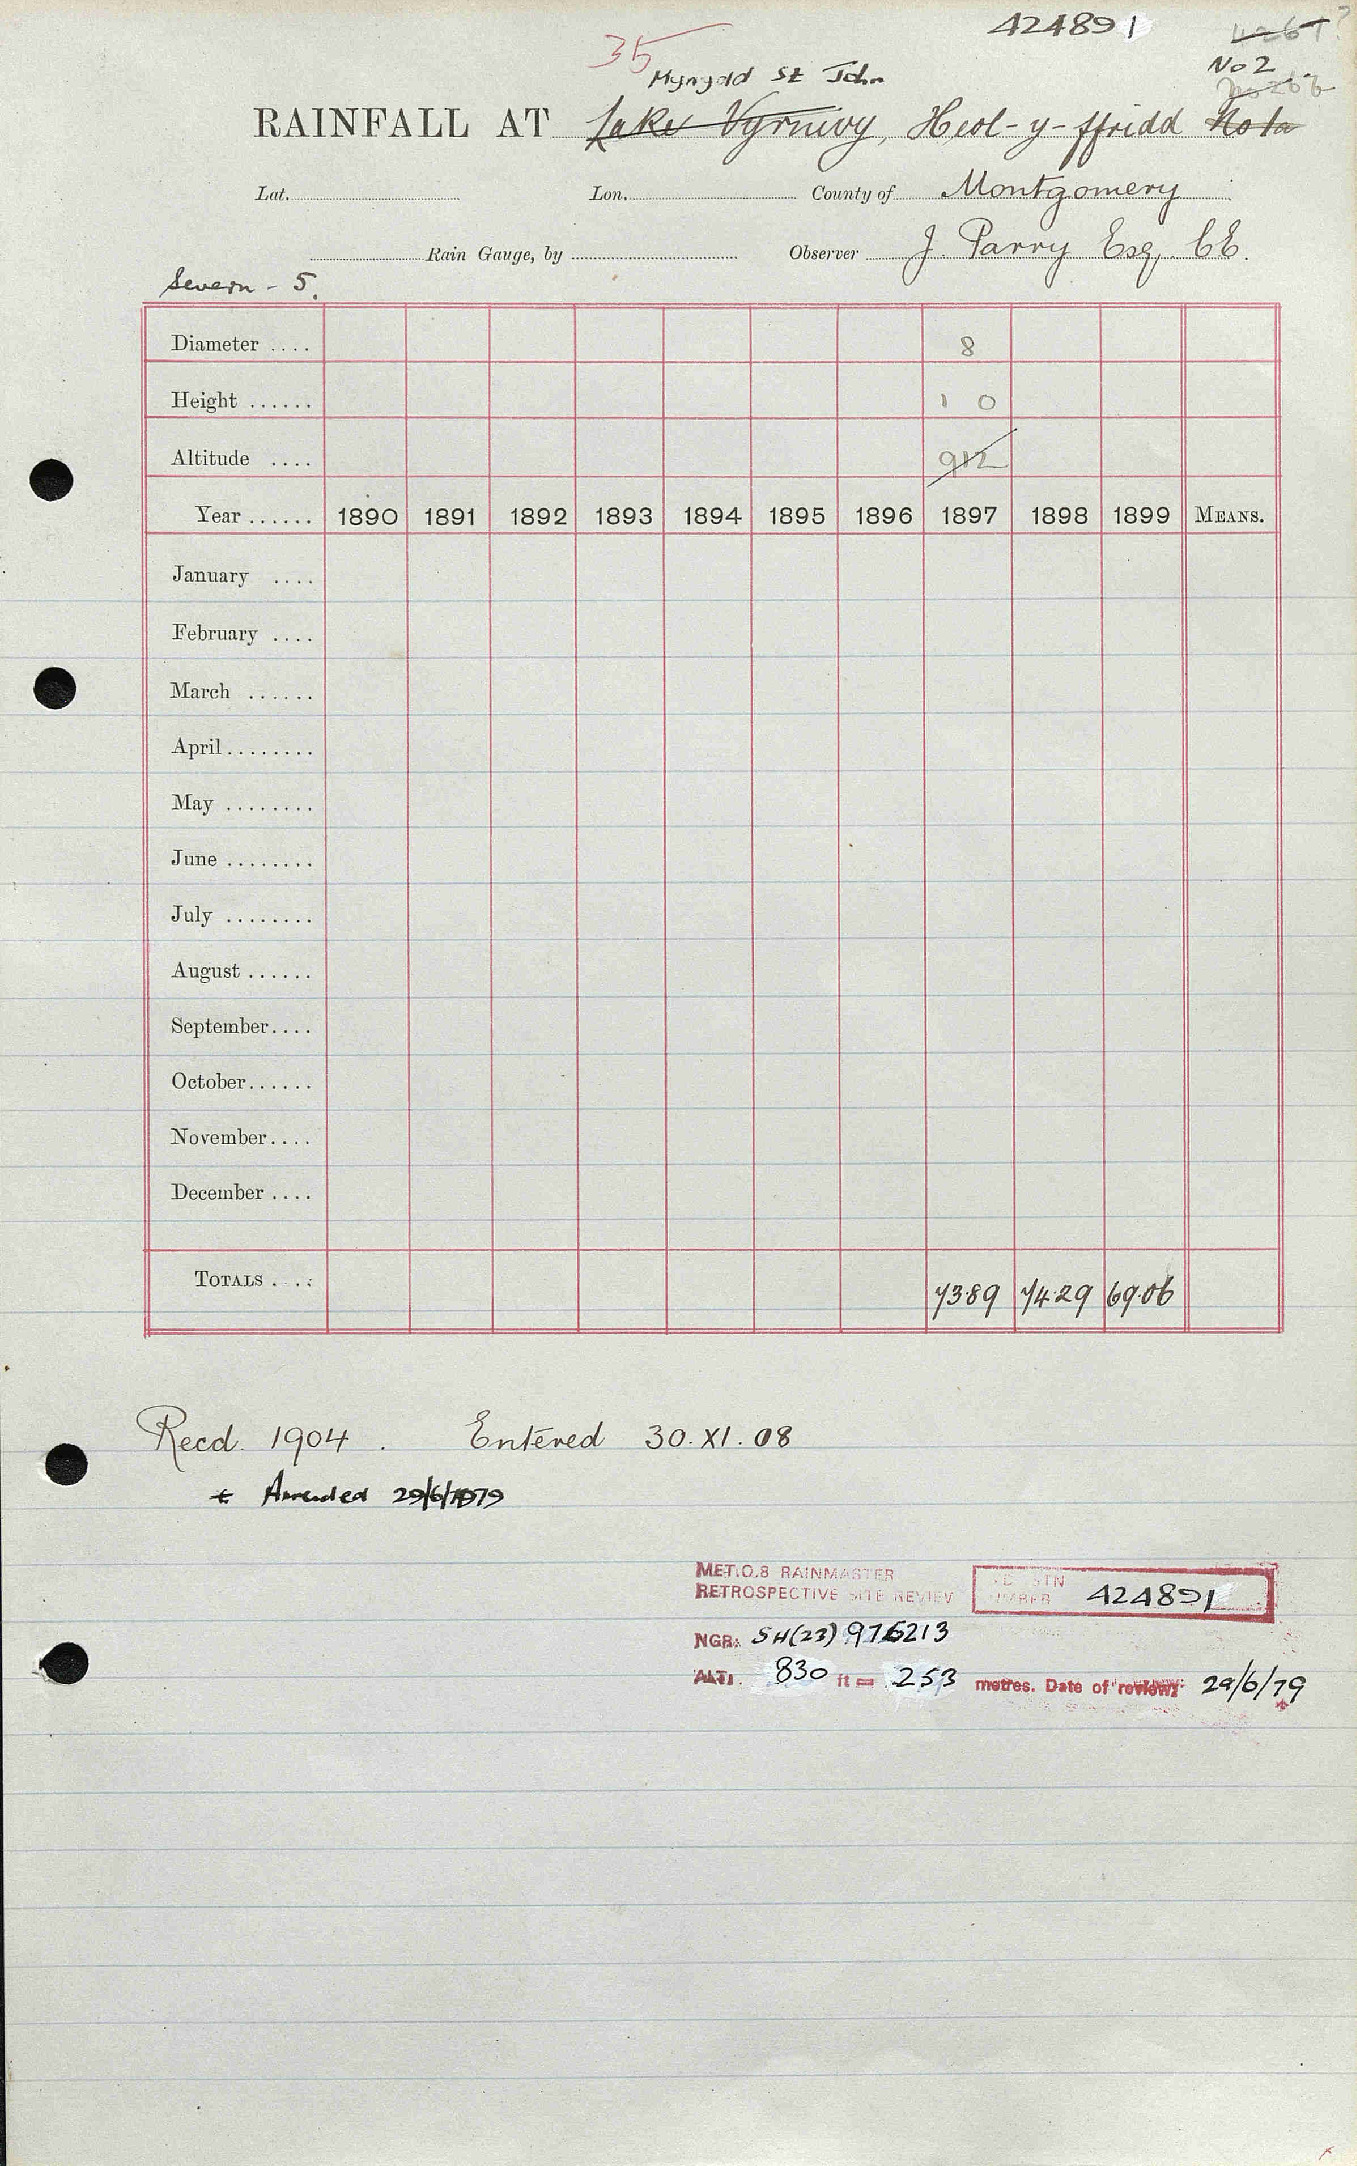 35 424891
Mynydd St John No 2
RAINFALL AT Lake Vyrnwy, Heol-y-ffridd No 1a
Lat. Lon. County of Montgomery
Rain Gauge, by Observer J. Parry Esq. CE.
Severn - 5.
Diameter .... 8
Height ...... 1 0
Altitude .... 912
Year ...... 1890 1891 1892 1893 1894 1895 1896 1897 1898 1899 MEANS.
January ....
February ....
March ......
April ........
May ........
June ........
July ........
August ......
September ....
October ......
November ....
December ....
TOTALS .... 73.89 74.29 69.06
Recd. 1904. Entered 30.XI.08
* Amended 29/6/1979
MET.O.8 RAINMASTER
RETROSPECTIVE SITE REVIEW
STN
NUMBER 424891
NGR: SH(23) 976213
ALT: 830 ft = 253 metres. Date of review: 29/6/79